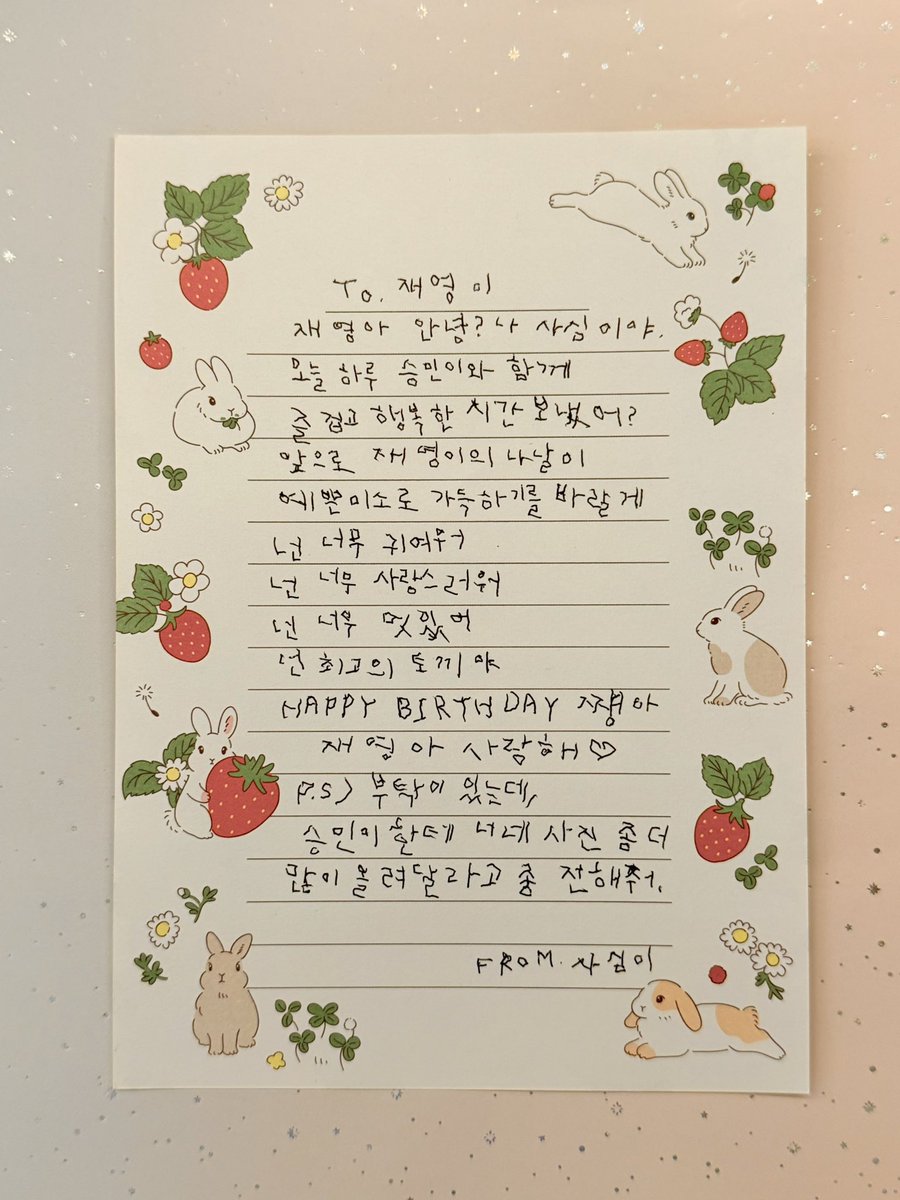 To. 재영이
재영아 안녕? 나 사심이야.
오늘 하루 승민이와 함께
즐겁고 행복한 시간 보냈어?
앞으로 재영이의 나날이
예쁜미소로 가득하기를 바랄게
넌 너무 귀여워
넌 너무 사랑스러워
넌 너무 멋있어
넌 최고의 토끼야
HAPPY BIRTHDAY 쪙아
재영아 사랑해♡
P.S) 부탁이 있는데,
승민이한테 너네 사진 좀 더
많이 올려달라고 좀 전해줘.
FROM. 사심이